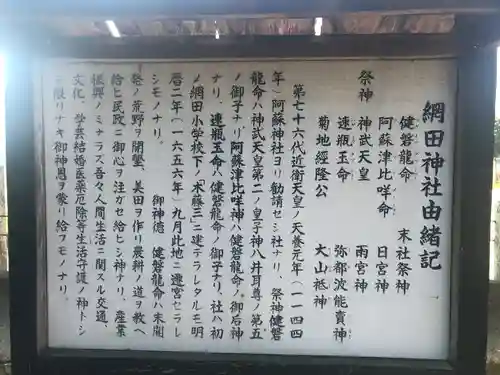 網田神社由緒記
祭神　健磐龍命　末社祭神
阿蘇津比咩命　日宮神
神武天皇　雨宮神
速瓶玉命　弥都波能賣神
菊地經隆公　大山祇神
第七十六代近衛天皇ノ天養元年(一一四四
年)阿蘇神社ヨリ勧請セシ社ナリ、祭神健磐
龍命ハ神武天皇第二ノ皇子神八井耳尊ノ第五
ノ御子ナリ阿蘇津比咩神ハ健磐龍命ノ御后神
ナリ、速瓶玉命ハ健磐龍命ノ御子ナリ、社ハ初
メ網田小学校下ノ「木藤三」ニ建テラレタルモ明
暦二年(一六五六年)九月此地ニ遷宮ヒラレ
シモノナリ。
御神徳　健磐龍命ハ未開
発ノ荒野ヲ開墾、美田ヲ作リ農耕ノ道ヲ教ヘ
給ヒ民政ニ御心ヲ注ガセ給ヒシ神ナリ、産業
振興ノミナラズ吾々人間生活ニ関スル交通、
文化、学芸結婚医薬厄除等生活守護ノ神トシ
テ限リナキ御神恩ヲ蒙リ給フモノナリ。